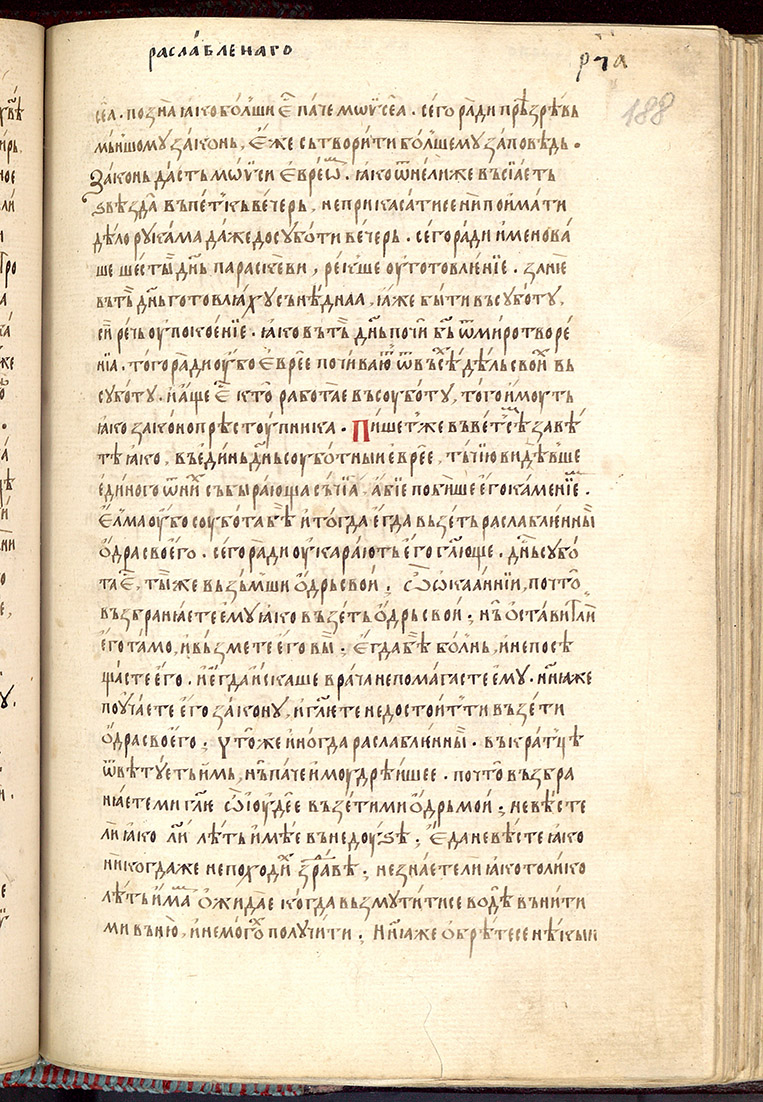 расла́блѐнаго
рч҃а
188
сеа̑ . позна̀ ꙗко бо́лши е҆̑ па́че мѡѵсе̑а . сего̀ ра́ди прѣ̑зрѣ́въ
мы́ншомꙋ зако́нь , є҆́же сътвори́ти бо́лшемꙋ за́повѣдь .
Зако́нь да́сть мѡѵ̈си є҆врѣ́ѡ̑ . ꙗ҆ко ѿне́лиже въсїа́еть
ѕвѣзда̀ въ пе́тькь ве́черь , не прикаса́тисе ни пойма́ти
дѣ́ло рꙋка́ма да́же до сꙋбо́ти ве́черь . сего ра́ди и҆менова́
ше ше́сты̑ дн҃ь параскеѵи , ре́кꙋше оу҆готовлѥ́нїе . зан̀ѥ
вътъ̑ дн҃ь готовлꙗ́хꙋ сънѣ́днаа , ꙗ҆́же бы́ти въсꙋбо́тꙋ ,
си́ рѣчь оу҆покое́нїе . ꙗ҆ко вътъ̑ дн҃ь почи̑ бь҃ ѿ миротворе́
нїа . того ра́ди оу҆́бо є҆вре́е почива́ю̑ ѿ въсѣ̑ дѣ́ль свои̑ вь
сꙋбо́тꙋ . и҆ а́ще е҆̑ кто̀ рабо́тае въсоубо́тꙋ , того̀ и҆мꙋть
ꙗ҆ко законопрѣстоу́пника . Пи́шет же въ ве́тсѣ̑ завѣ́
тѣ ꙗ҆ко , въ е҆ди́нь дн҃ь соубо́тныи е҆вре́е , тъ́чїю видѣ́вше
е҆ди́ного ѿ ни̑ събира́юща съ́чїа̑ , а҆́бїе поби́ше е҆го ка́менїе̑ .
Е҆лма̀ оу҆́бо соубо́та бѣ̀ и҆ тогда̀ е҆гда̀ вьзе́ть расла́блѥнны
ѻ҆дра̀ своего̀ . сего ра́ди оу҆кара́ють е҆го̀ гл҃юще . дн҃ь сꙋбо́
та е҆̑ , ты̑ же вьзь́мши ѻ҆́дрь свои́ ; ѽ ѻ҆каа́ннїи , почто̀
възбранꙗ́ете є҆мꙋ ꙗ҆ко въ́зеть ѻ҆́дрь свои́ ; нь̀ ѻ҆ста́ви ли
є҆го̀ та́мо , и҆ възмете є҆го вы̀ ; Е҆гда̀ бѣ̀ бо́лнь , и҆ не посѣ
ща́сте е҆го . и҆ е҆гда̀ и҆ска́ше врача̀ не помага́сте е҆мꙋ . нн҃ꙗ же
поу҆ча́ете е҆го̀ зако́нꙋ , и҆ гл҃ѥте не достои́ ти въ́зети
ѻ҆дра̀ своего̀ ; у то́же и҆но́гда расла́блѥнны̑ . въкра́тцѣ
ѿвѣ́тꙋеть и҆мь , нъ̀ па́че и҆ моудрѣ́ишее . почто̀ възбра
нꙗ́ете ми гл҃ю ѽ і҆оуде́е въ́зети ми ѻ҆́дрь мои́ ; не вѣ́сте
ли ꙗ҆ко л҃и лѣ́ть и҆мѣ́е въ недоу́ѕѣ ; Е҆да̀ не вѣ́сте ꙗ҆ко
никогда́же не походи̑ здра́вѣ ; не зна́ете ли ꙗ҆ко толи́ко
лѣ́ть и҆ма̑ ѻ҆жида́е когда̀ вьзмꙋ́титисе водѣ̀ въни́ти
ми въню̀ , и҆ не мого̑ полꙋчи́ти ; Нн҃ꙗ же ѻ҆брѣ́тесе нѣ́кыи